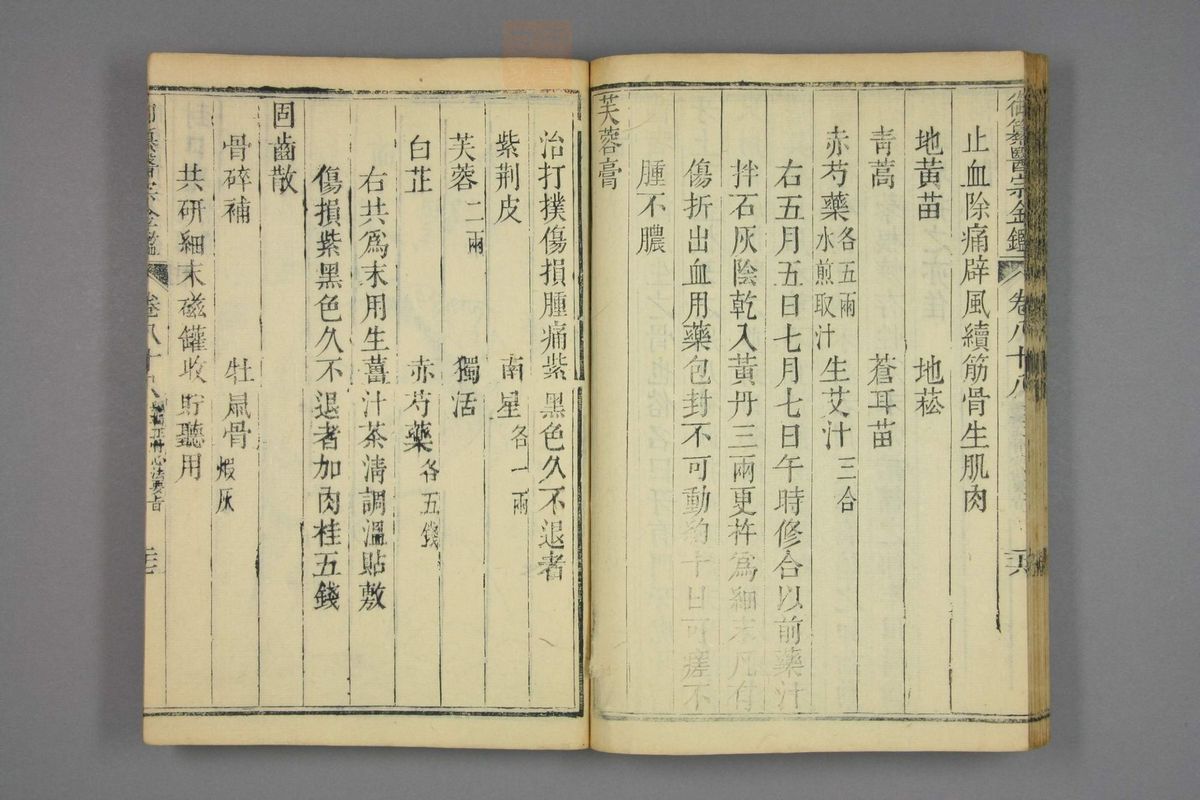 御纂醫宗金鑑 卷八十八 二六
止血除痛辟風續筋骨生肌肉
地黃苗 地菘
靑蒿 蒼耳苗
赤芍藥各五兩水煎取汁 生艾汁三合
右五月五日七月七日午時修合以前藥汁
拌石灰陰乾入黃丹三兩更杵爲細末凡有
傷折出血用藥包封不可動約十日可瘥不
腫不膿
芙蓉膏
治打撲傷損腫痛紫黑色久不退者
紫荆皮 南星各一兩
芙蓉二兩 獨活
白芷 赤芍藥各五錢
右共爲末用生薑汁茶淸調溫貼敷
傷損紫黑色久不退者加肉桂五錢
固齒散
骨碎補 牡鼠骨煅灰
共研細末磁罐收貯聽用
纂醫宗金鑑 卷八十八 正骨心法要旨